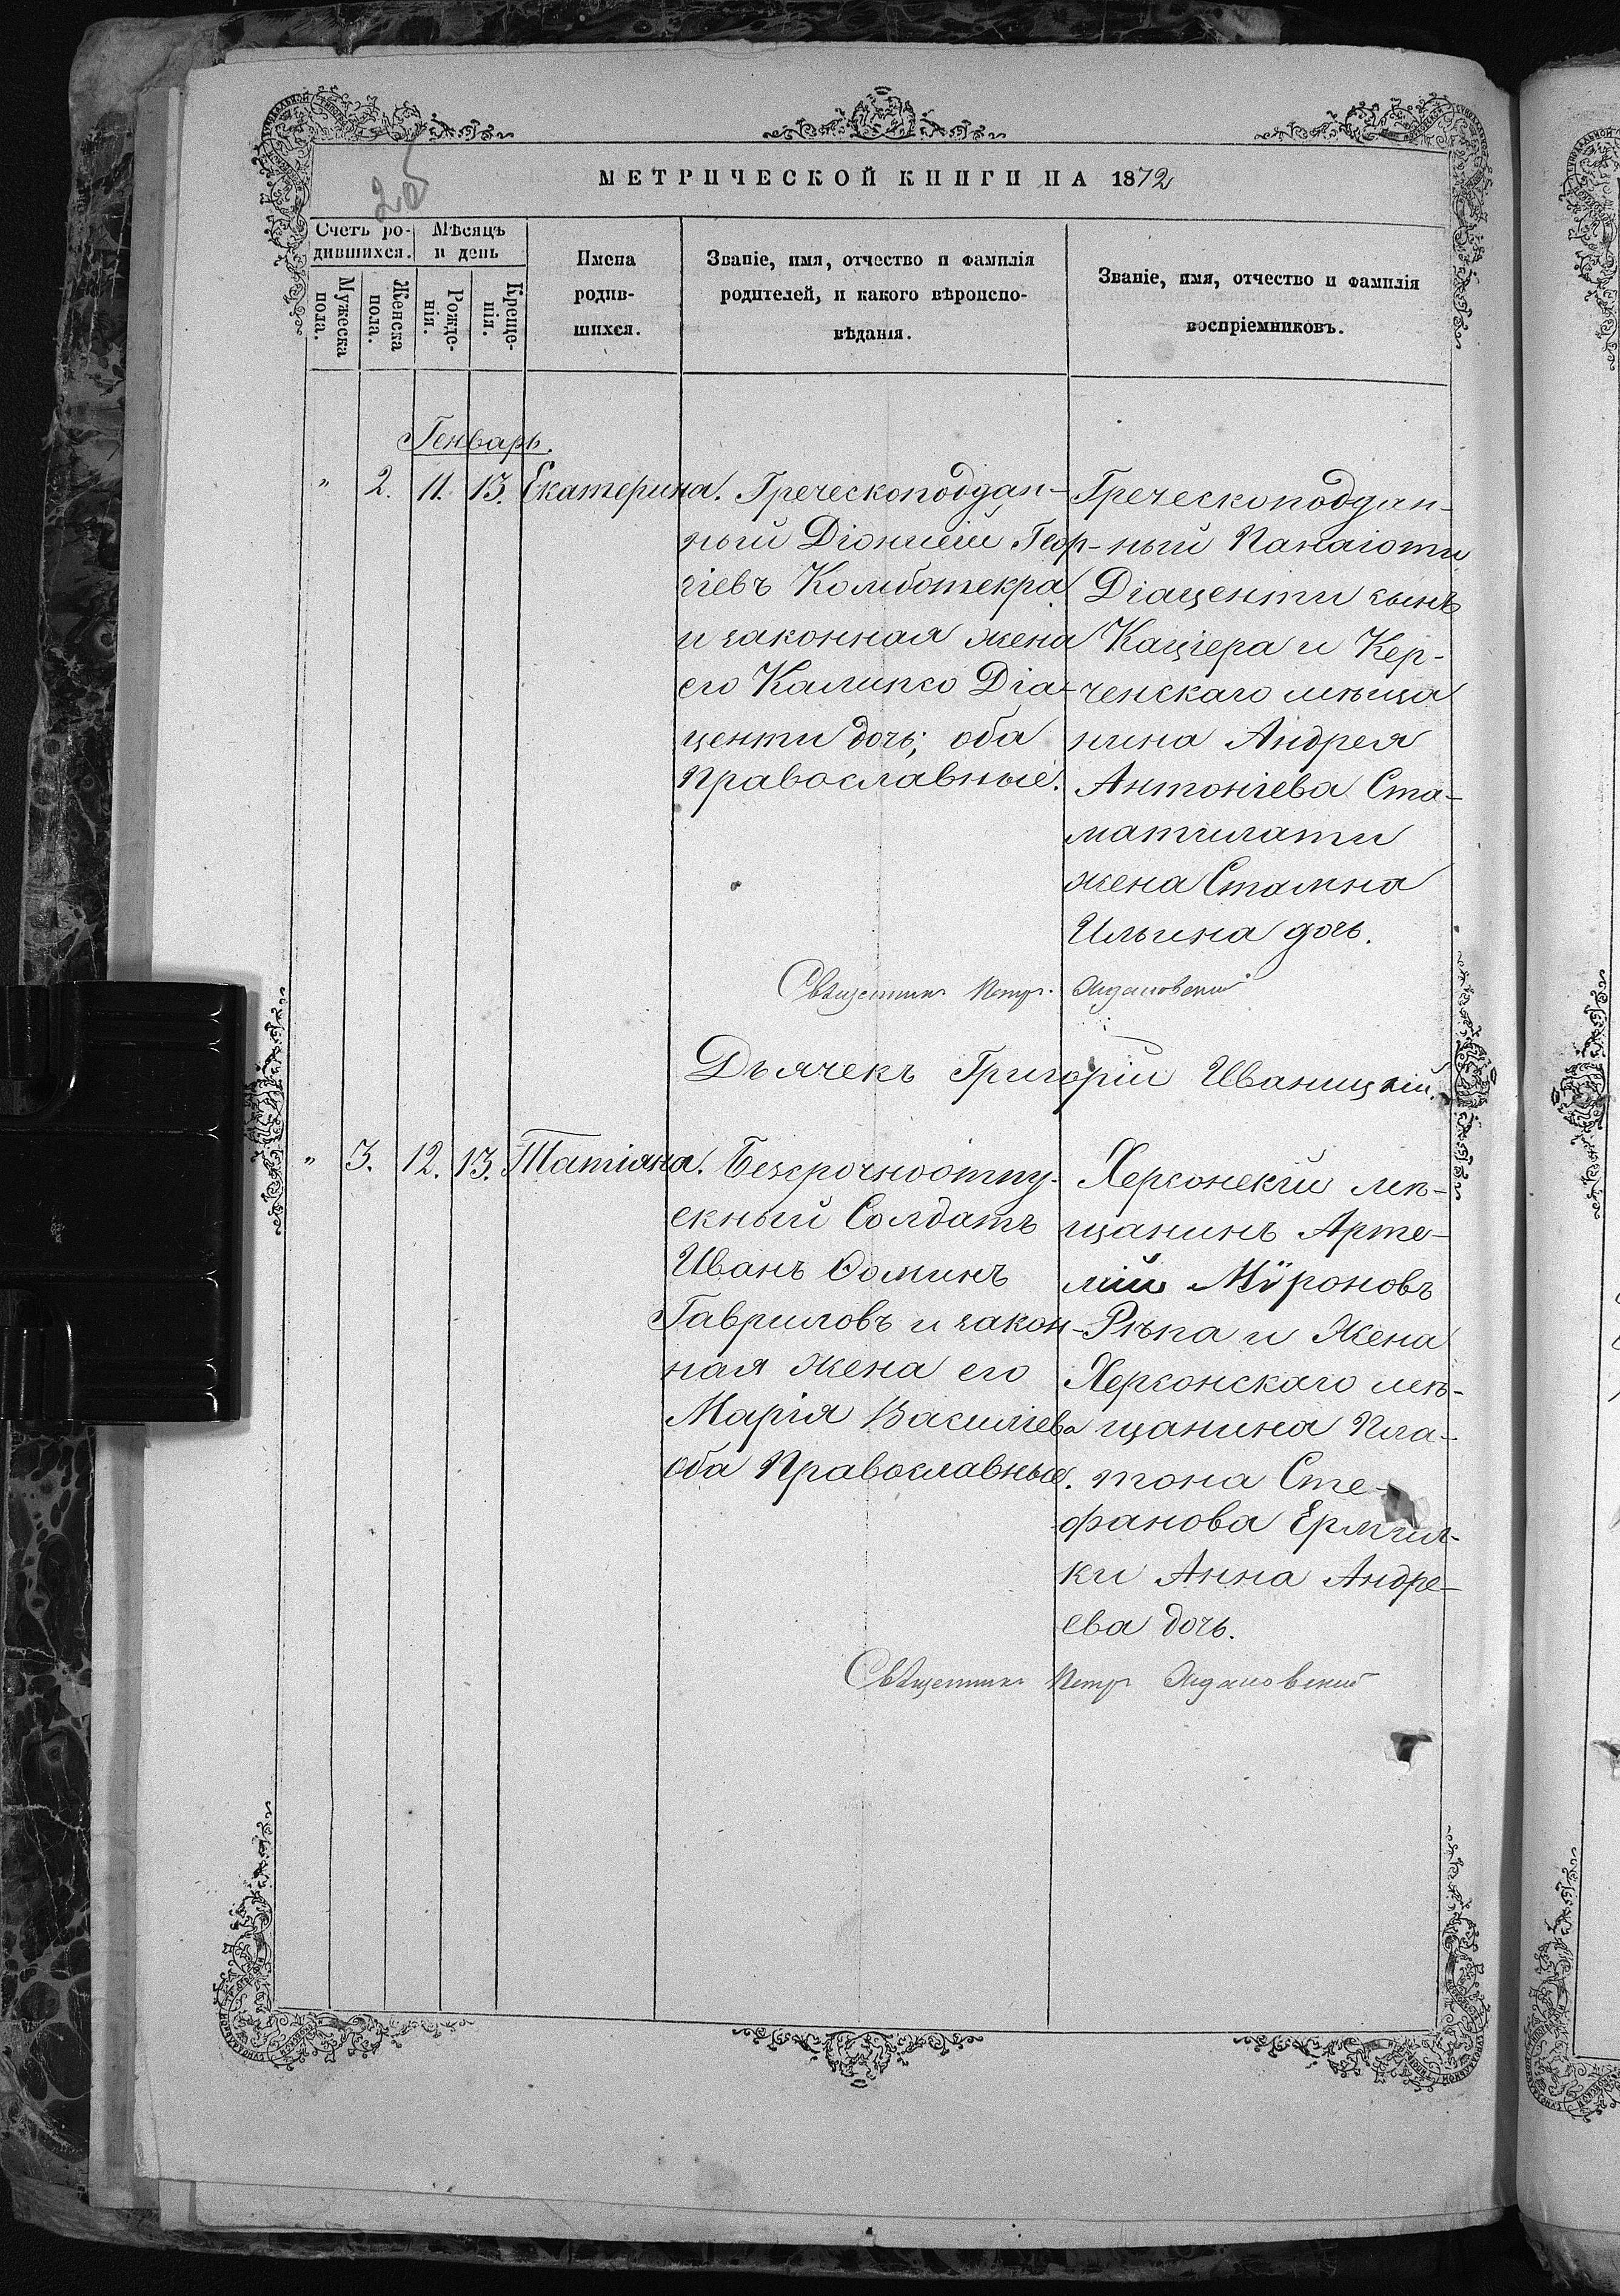 МЕТРИЧЕСКОЙ КНИГИ НА 1872
Счетъ ро-
дившихся.
Мѣсяцъ
и день
Мужеска
пола.
Женска
пола.
Рожде-
нія.
Креще-
нія.
Имена
родив-
шихся.
Званіе, имя, отчество и фамилія
родителей, и какого вѣроиспо-
вѣданія.
Званіе, имя, отчество и фамилія
воспріемниковъ.
Генварь.
" 2. 11. 13. Екатерина.
Греческоподдан-
ный Діонисій Геор-
гіевъ Комботекра
и законная жена
его Калипсо Діа-
центи дочь; оба
Православные.
Греческоподдан-
ный Панаіоти
Діаценти сынъ
Каціера и Кер-
ченскаго мѣща
нина Андрея
Антоніева Ста-
матилати
жена Стамна
Ильина дочь.
Священникъ Петръ
Дьячекъ Григорій Иваницкій.
" 3. 12. 13. Татіяна.
Безсрочноотпу-
скный Солдатъ
Иванъ Ѳоминъ
Гавриловъ и закон-
ная жена его
Марія Василіева
оба Православные.
Херсонскій мѣ-
щанинъ Арте-
мій Мѵроновъ
Рѣпа и Жена
Херсонскаго мѣ-
щанина Пла-
тона Сте-
фанова Ермил-
ки Анна Андре-
ева дочь.
Священникъ Петръ